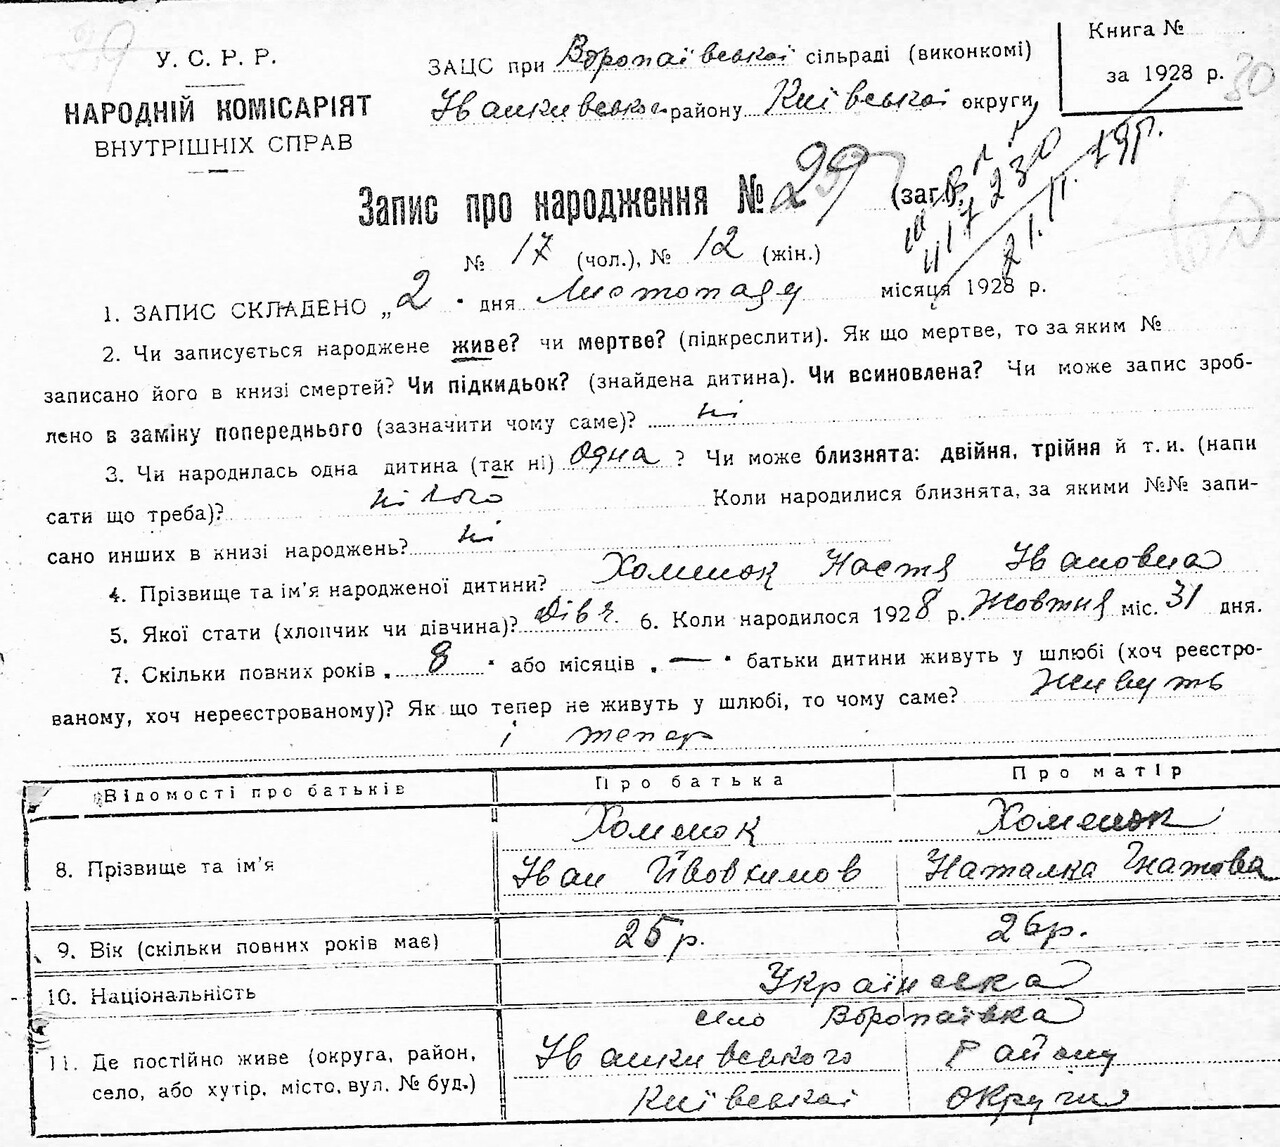 У. С. Р. Р.
НАРОДНІЙ КОМІСАРІЯТ
ВНУТРІШНІХ СПРАВ
ЗАЦС при Воропаївської сільраді (виконкомі)
Іванкивського району Київської округи
Книга №
за 1928 р. 30
Запис про народження № 29 (заг.)
21.II.
№ 17 (чол.), № 12 (жін.)
1. ЗАПИС СКЛАДЕНО „2 " дня Листопаду місяця 1928 р.
2. Чи записується народжене живе? чи мертве? (підкреслити). Як що мертве, то за яким №
записано його в книзі смертей? Чи підкидьок? (знайдена дитина). Чи всиновлена? Чи може запис зроб-
лено в заміну попереднього (зазначити чому саме)? ні
3. Чи народилась одна дитина (так ні) одна ? Чи може близнята: двійня, трійня й т. и. (напи
сати що треба)? Коли народилися близнята, за якими №№ запи-
сано инших в книзі народжень? ні
4. Прізвище та ім'я народженої дитини? Хоменок Настя Івановна
5. Якої стати (хлопчик чи дівчина)? Дівч. 6. Коли народилося 1928 р. Жовтня міс. 31 дня.
7. Скільки повних років „ 8 " або місяців „ — " батьки дитини живуть у шлюбі (хоч реєстро-
ваному, хоч нереєстрованому)? Як що тепер не живуть у шлюбі, то чому саме? Живуть
і тепер
Відомості про батьків Про батька Про матір
8. Прізвище та ім'я Хоменок Хоменок
Іван Йвовкимов Наталка Гнатова
9. Вік (скільки повних років має) 25 р. 26 р.
10. Національність Українська
11. Де постійно живе (округа, район, село, або хутір, місто, вул. № буд.) село Воропаївка
Іванкивського Району
Київської округи